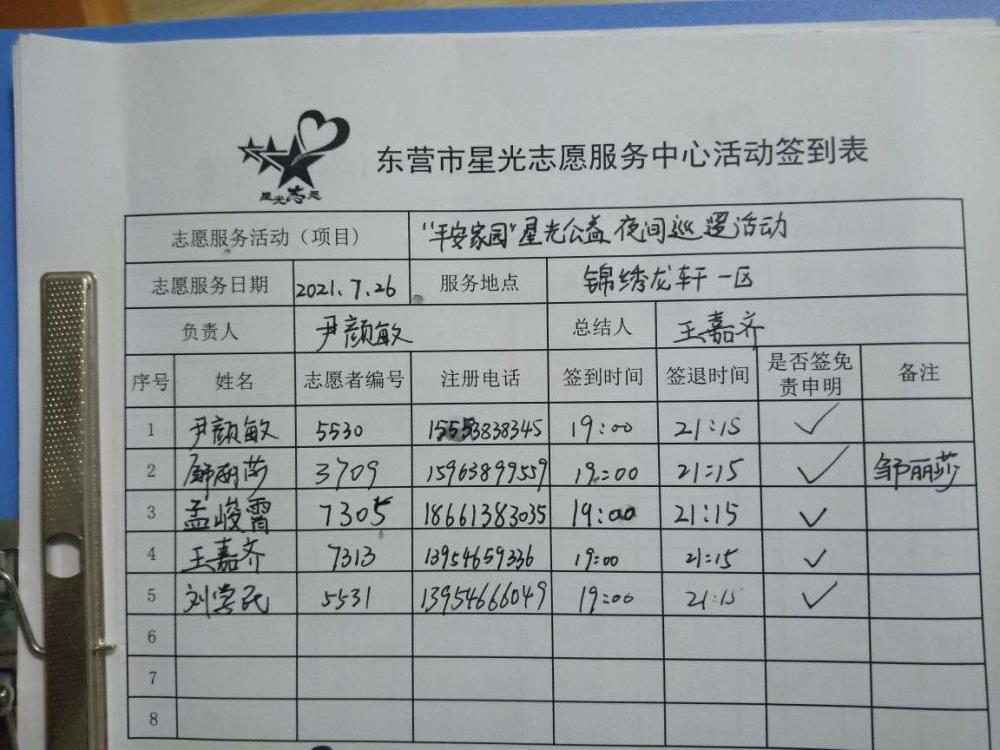 星光志愿
东营市星光志愿服务中心活动签到表
志愿服务活动（项目） “平安家园”星光公益夜间巡逻活动
志愿服务日期 2021.7.26 服务地点 锦绣龙轩一区
负责人 尹颜敏 总结人 王嘉齐
序号 姓名 志愿者编号 注册电话 签到时间 签退时间 是否签免责申明 备注
1 尹颜敏 5530 15553838345 19:00 21:15 ✓
2 邹丽莎 3709 15963899559 19:00 21:15 ✓ 邹丽莎
3 孟峻霄 7305 18661383035 19:00 21:15 ✓
4 王嘉齐 7313 13954659336 19:00 21:15 ✓
5 刘学民 5531 13954666049 19:00 21:15 ✓
6
7
8